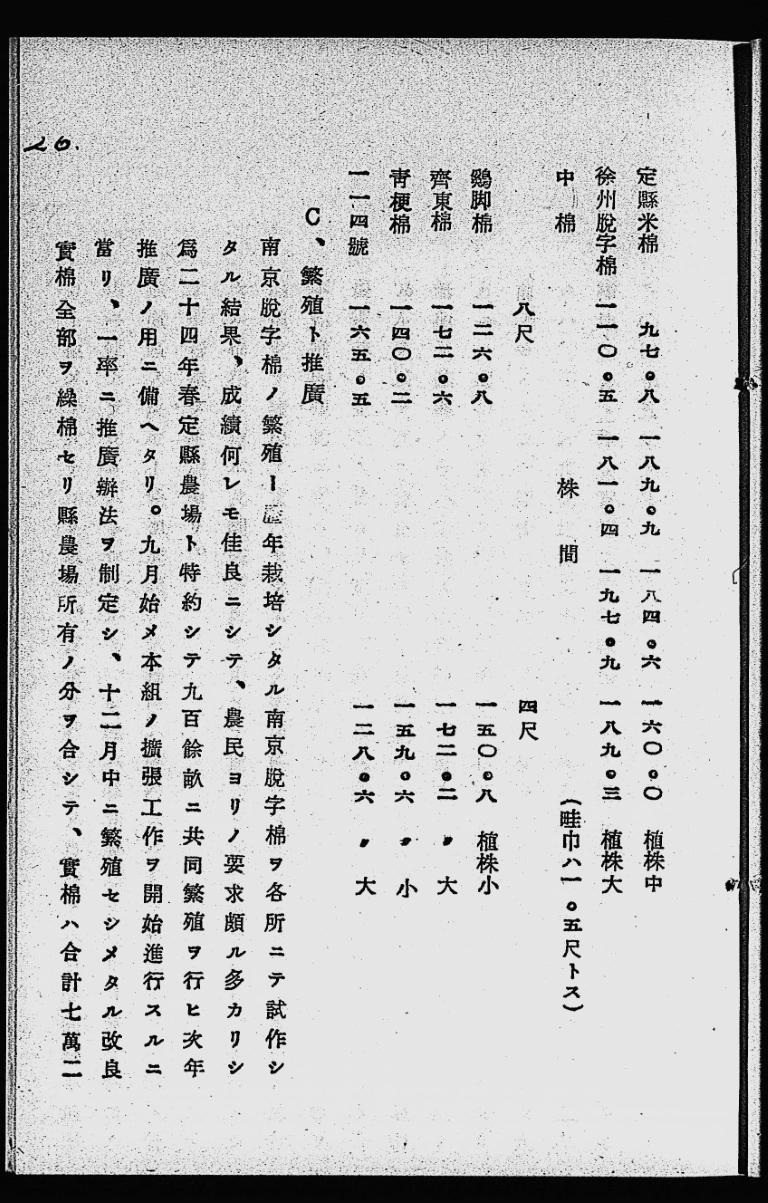 定縣米棉　九七。八　一八九。九　一八四。六　一六〇。〇　植株中
徐州脫字棉　一一〇。五　一八一。四　一九七。九　一八九。三　植株大
中棉　株間　(畦巾ハ一。五尺トス)
八尺　四尺
鷄脚棉　一二六。八　一五〇。八　植株小
齊東棉　一七二。六　一七二。二　〃　大
靑梗棉　一四〇。二　一五九。六　〃　小
一一四號　一六五。五　一二八。六　〃　大
C、繁殖ト推廣
南京脫字棉ノ繁殖ー歷年栽培シタル南京脫字棉ヲ各所ニテ試作シ
タル結果、成績何レモ佳良ニシテ、農民ヨリノ要求頗ル多カリシ
爲二十四年春定縣農場ト特約シテ九百餘畝ニ共同繁殖ヲ行ヒ次年
推廣ノ用ニ備ヘタリ。九月始メ本組ノ擴張工作ヲ開始進行スルニ
當リ、一率ニ推廣辦法ヲ制定シ、十二月中ニ繁殖セシメタル改良
實棉全部ヲ繰棉セリ縣農場所有ノ分ヲ合シテ、實棉ハ合計七萬二
26.